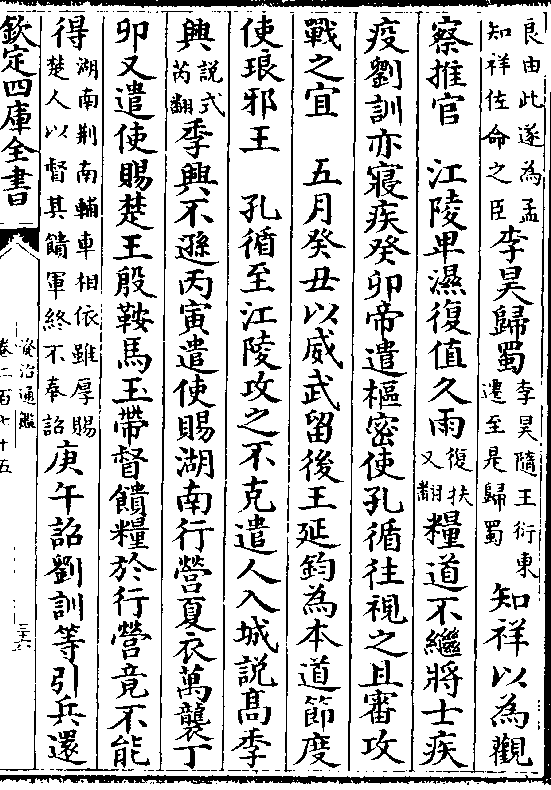 良由此遂為孟
知祥佐命之臣
李昊歸蜀
李昊隨王衍東
遷至是歸蜀
知祥以為觀
察推官　江陵卑濕復值久雨
復扶
又翻
糧道不繼將士疾
疫劉訓亦寢疾癸卯帝遣樞密使孔循往視之且審攻
戰之宜　五月癸丑以威武留後王延鈞為本道節度
使琅邪王　孔循至江陵攻之不克遣人入城説髙季
興
説式
芮翻
季興不遜丙寅遣使賜湖南行營夏衣萬襲丁
卯又遣使賜楚王殷鞍馬玉帶督饋糧於行營竟不能
得
湖南荆南輔車相依雖厚賜
楚人以督其饋軍終不奉詔
庚午詔劉訓等引兵還
欽定四庫全書
資治通鑑
卷二百七十五
三十六